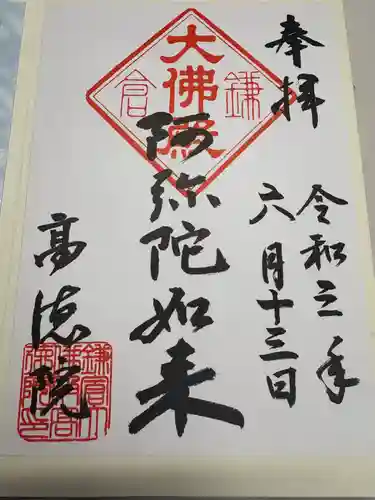 奉拝
令和三年
六月十三日
大佛殿
鎌倉
阿弥陀如来
高徳院